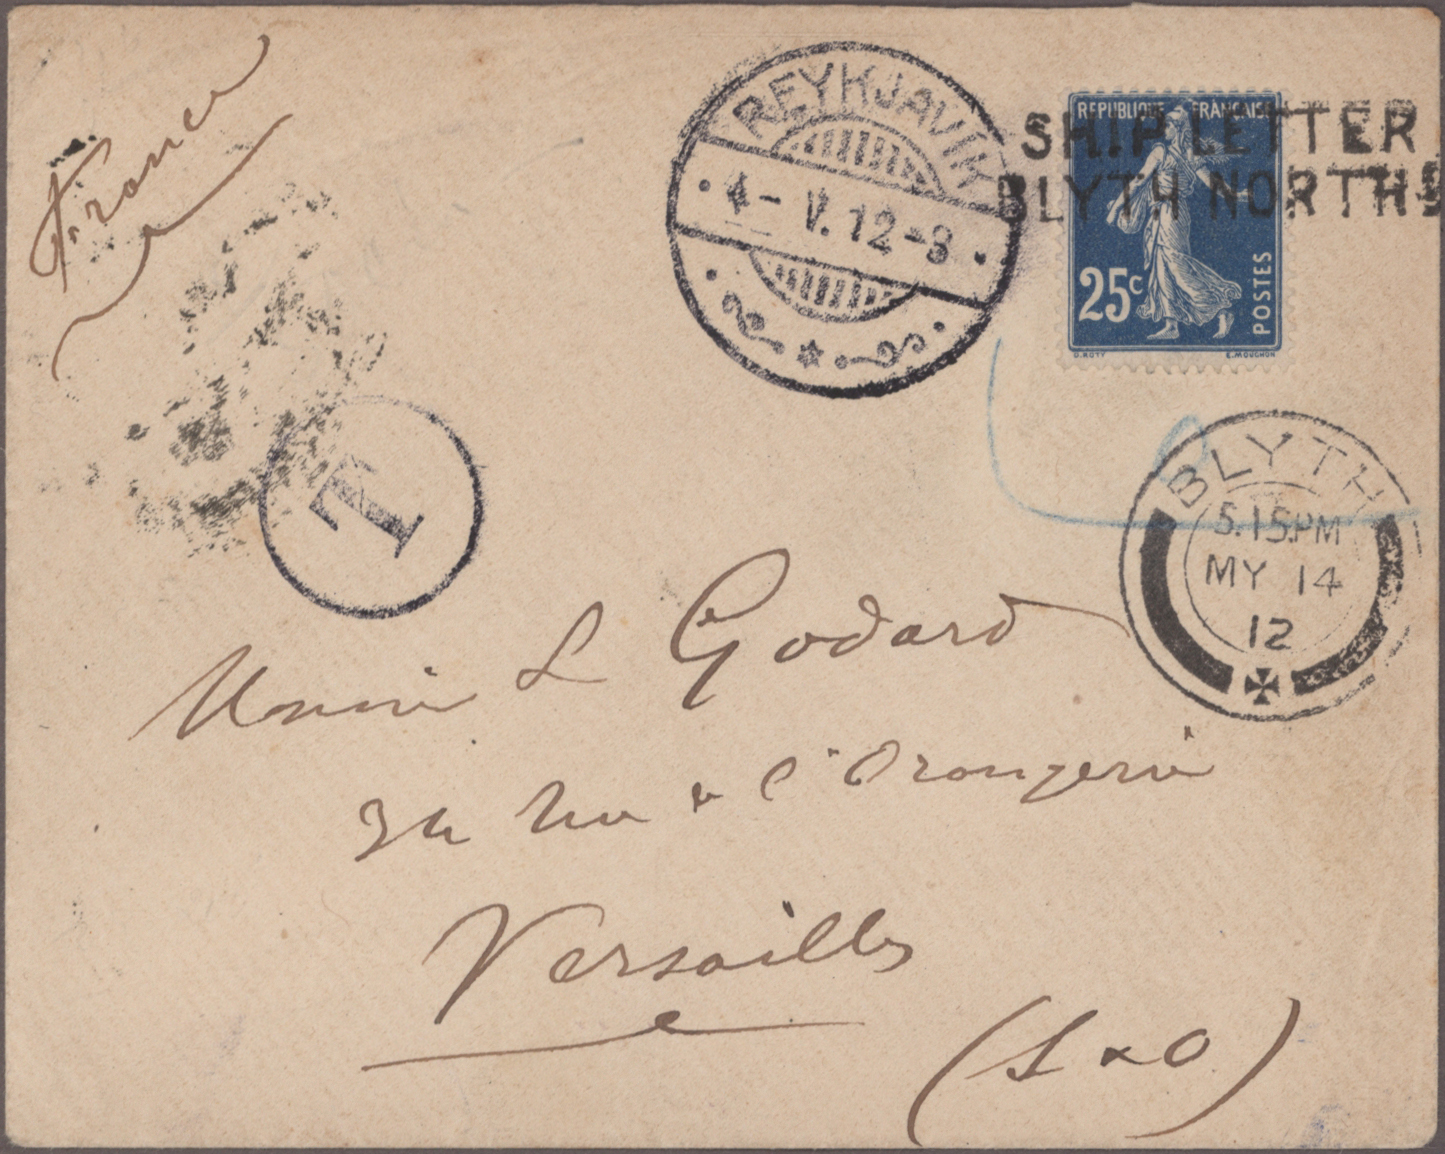 France
REYKJAVIK
4-V.12-8
SHIP LETTER
BLYTH NORTH
REPUBLIQUE FRANÇAISE
25c
POSTES
O.ROTY
E.MOUCHON
T
BLYTH
5.15PM
MY 14
12
L Godard
l'Orangerie
Versailles
(S & O)